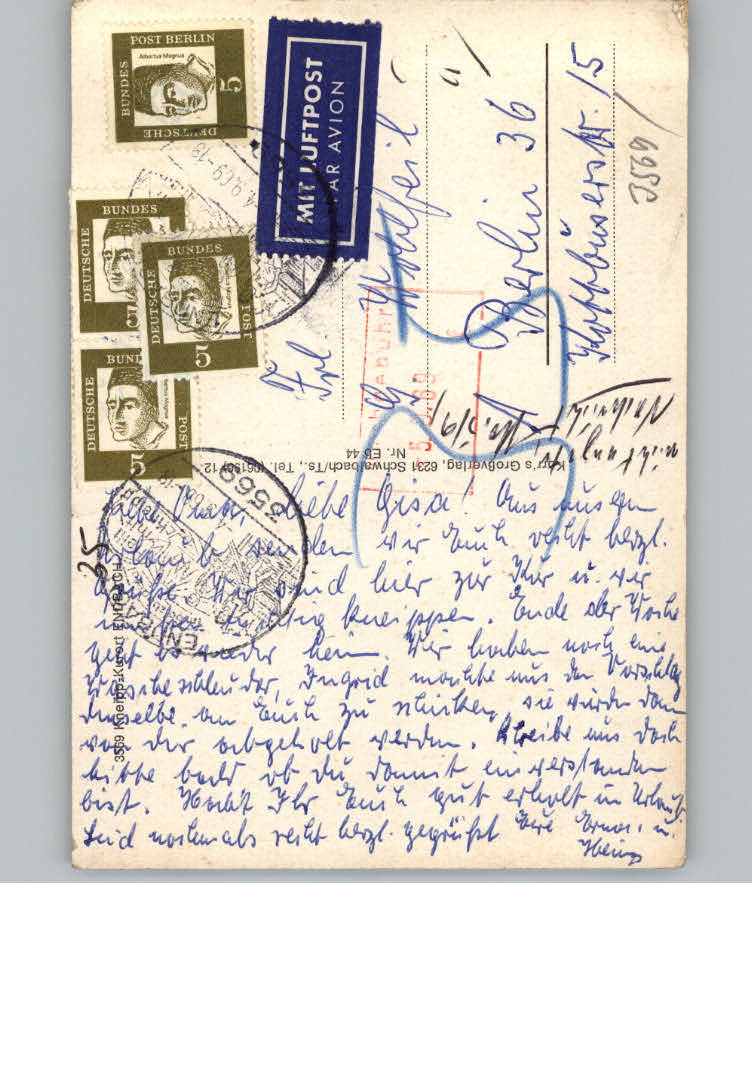 DEUTSCHE
BUNDES
POST BERLIN
Albertus Magnus
5
DEUTSCHE
BUNDES
5
DEUTSCHE
BUNDES
POST
5
DEUTSCHE
BUND
POST
5
MIT LUFTPOST
PAR AVION
3569
35
Frl.
G.
Berlin 36
Kottbuserstr. 15
3569
Korr's Großverlag, 6231 Schwalbach/Ts., Tel.
Nr. Eb 44
3569 Kneipp-Kurort ENDBACH
liebe Gisa! Aus unserm
Urlaub senden wir Euch recht herzl.
Grüße. Wir sind hier zur Kur u. wir
tüchtig kneippen. Ende der Woche
geht es wieder heim. Wir haben noch eine
Wäscheschleuder, Ingrid machte uns den Vorschlag
dieselbe an Euch zu schicken, sie würde dann
von dir abgeholt werden. Schreibe uns doch
bitte bald ob du damit einverstanden
bist. Habt Ihr Euch gut erholt im Urlaub
Seid nochmals recht herzl. gegrüßt Eure Erna u.
Heinz